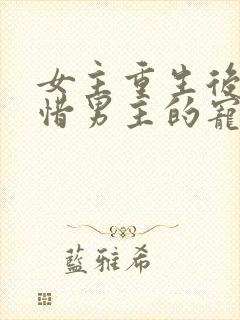 女主重生後
惜男主的寵
藍雅希